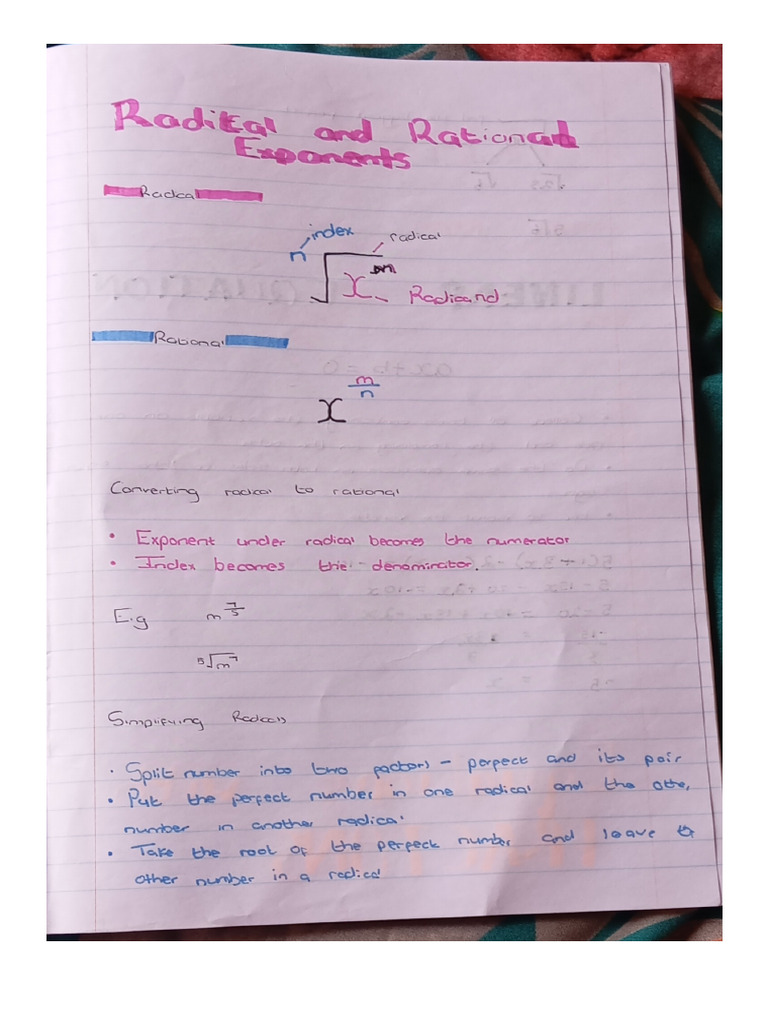 Radical and Rational
Exponents
Radical
index
radical
n√x^m
Radicand
Rational
x^(m/n)
Converting radical to rational
• Exponent under radical becomes the numerator
• Index becomes the denominator.
E.g m^(7/5)
5√m^7
Simplifying Radicals
• Split number into two factors - perfect and its pair
• Put the perfect number in one radical and the othe
number in another radical
• Take the root of the perfect number and leave
other number in a radical